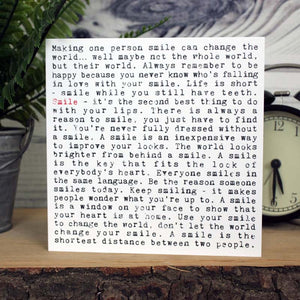 Making one person smile can change the
world... well maybe not the whole world,
but their world. Always remember to be
happy because you never know who's falling
in love with your smile. Life is short
- smile while you still have teeth.
Smile - it's the second best thing to do
with your lips. There is always a
reason to smile, you just have to find
it. You're never fully dressed without
a smile. A smile is an inexpensive way
to improve your looks. The world looks
brighter from behind a smile. A smile
is the key that fits the lock of
everybody's heart. Everyone smiles in
the same language. Be the reason someone
smiles today. Keep smiling - it makes
people wonder what you're up to. A smile
is a window on your face to show that
your heart is at home. Use your smile
to change the world, don't let the world
change your smile. A smile is the
shortest distance between two people.